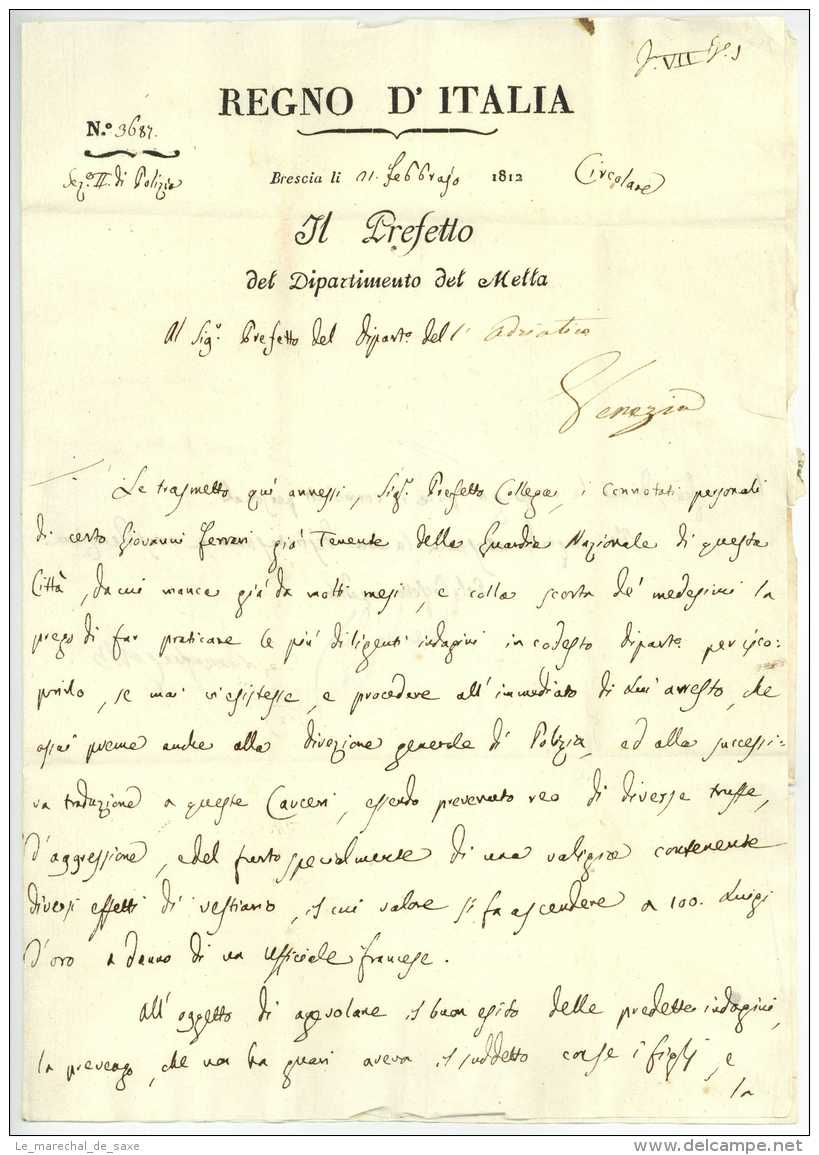 REGNO D' ITALIA
N.º 3687.
Sez.º II. di Polizia
Brescia li 21. febbrajo 1812
Circolare
Il Prefetto
del Dipartimento del Mella
Al Sig.r Prefetto del Dipart.º dell' Adriatico
Venezia
Le trasmetto quì annessi, Sig.r Prefetto Collega, i connotati personali
di certo Giovanni Ferrari già Tenente della Guardia Nazionale di questa
Città, da cui manca già da molti mesi, e colla scorta de' medesimi la
prego di far praticare le più diligenti indagini in codesto dipart.º per isco-
prirlo, se mai v'esistesse, e procedere all' immediato di lui arresto, che
assai preme anche alla direzione generale di Polizia, ed alla successi-
va traduzione a queste Carceri, essendo prevenuto reo di diverse truffe,
d'aggressione, e del furto specialmente di una valigia contenente
diversi effetti di vestiario, il cui valore si fa ascendere a 100. Luigi
d'oro a danno di un Ufficiale francese.
All' oggetto di agevolare il buon esito delle predette indagini,
la prevengo, che non ha guari aveva il suddetto corse i figlj, e
la
Le_marechal_de_saxe
delcampe.net